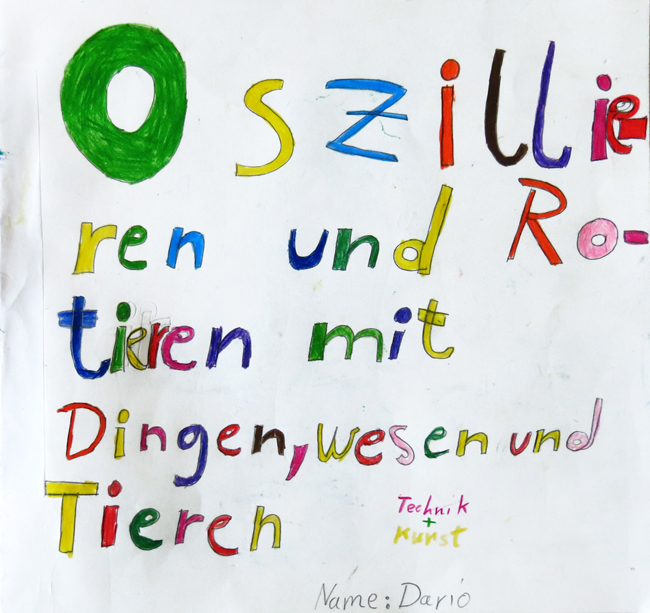 Oszillie-
ren und Ro-
tieren mit
Dingen, wesen und
Tieren
Technik
+
Kunst
Name: Dario